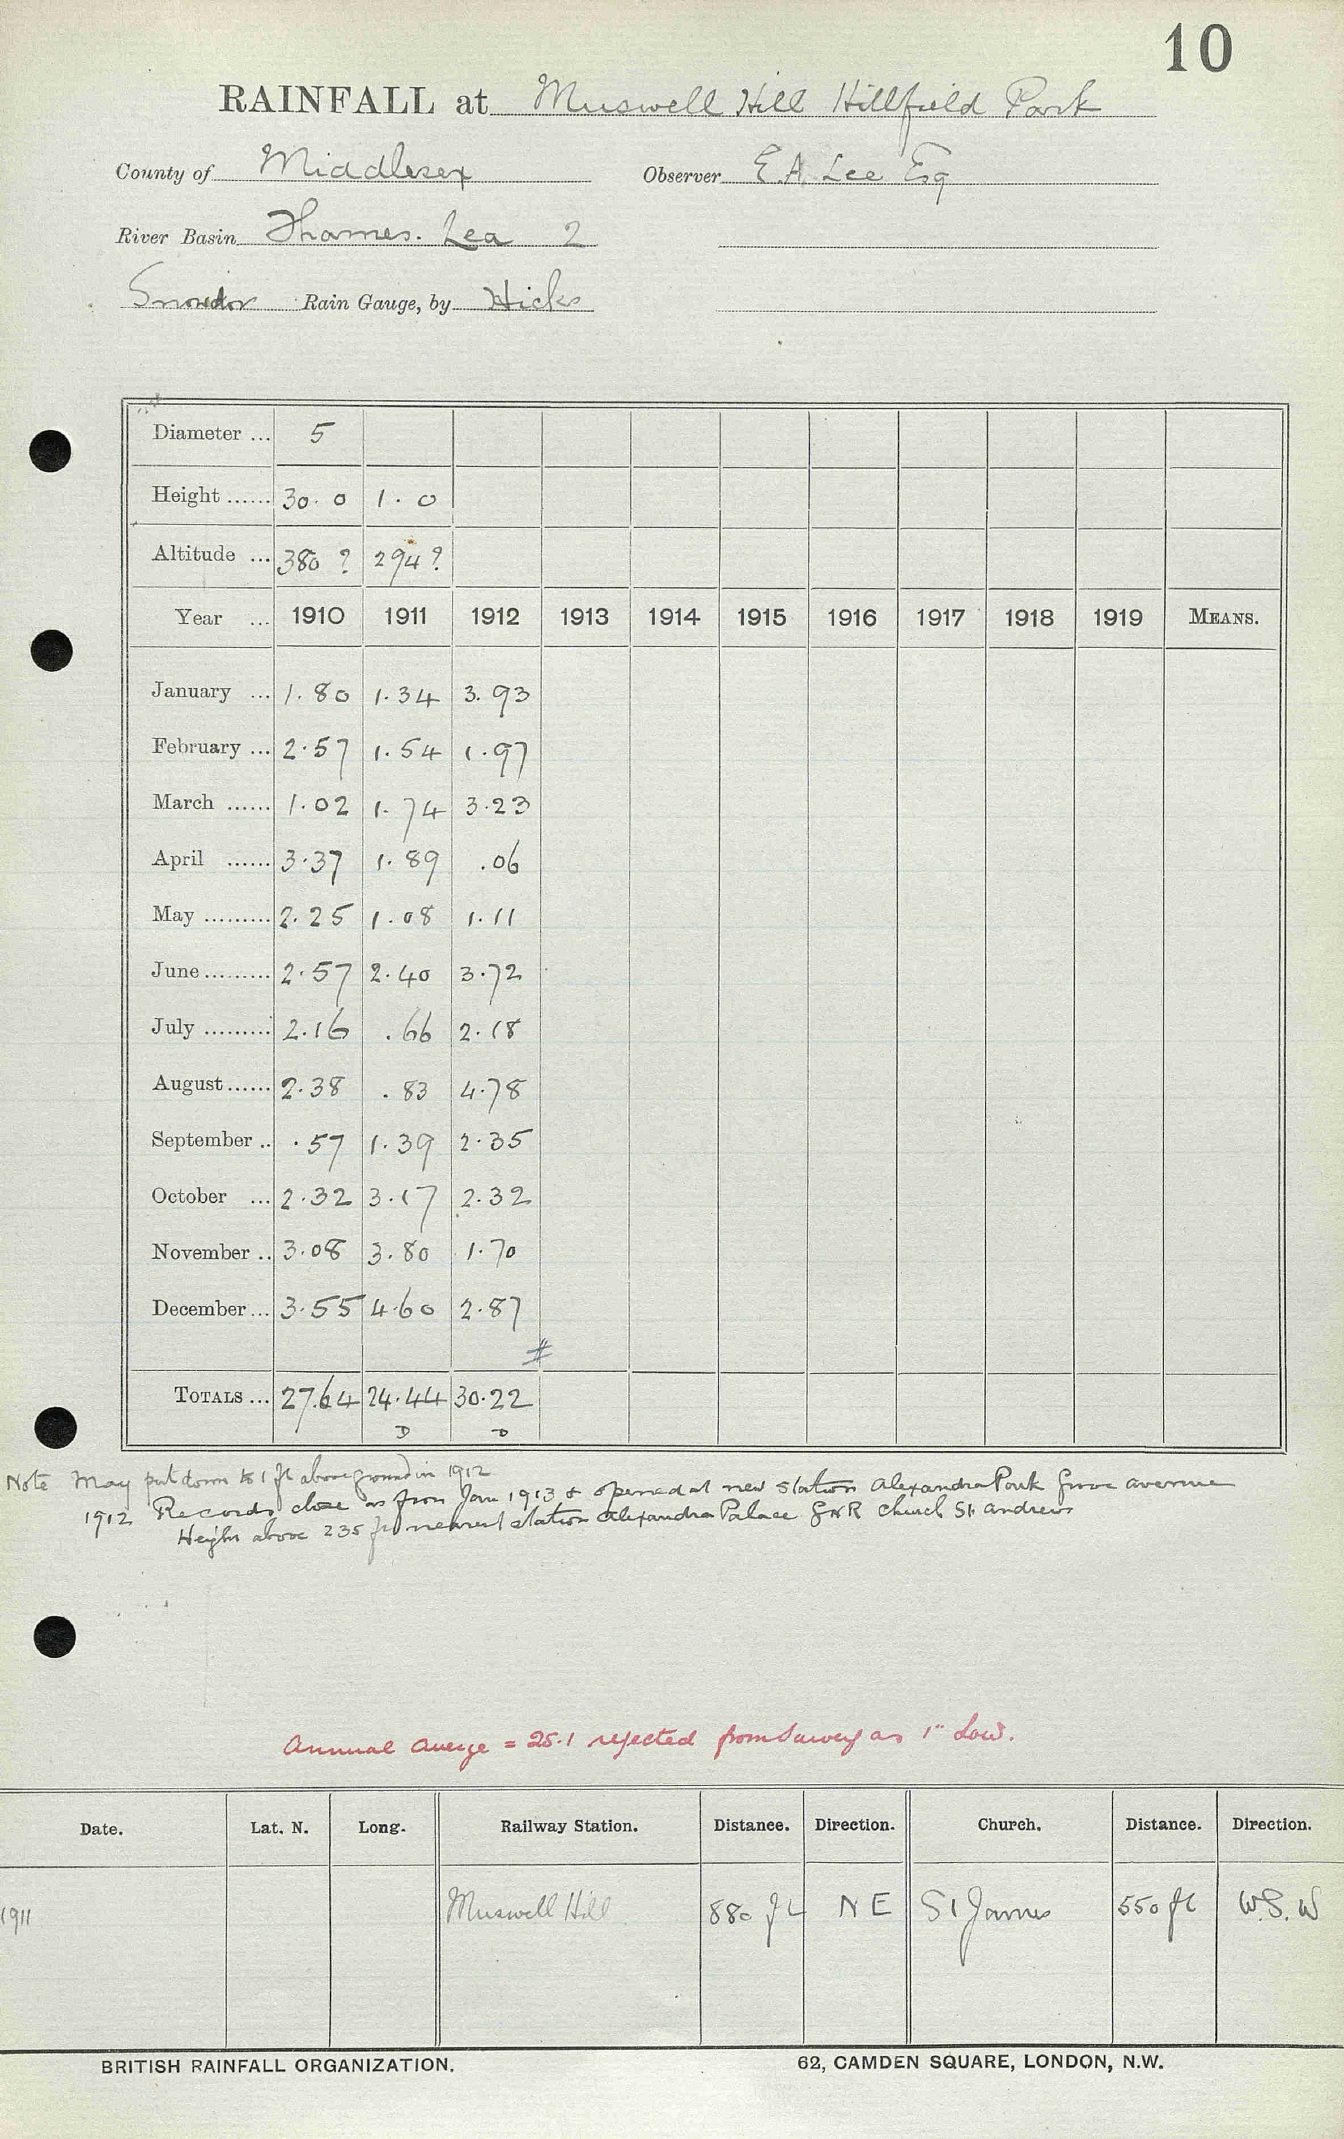 10
RAINFALL at Muswell Hill Hillfield Park
County of Middlesex Observer E.A. Lee Esq
River Basin Thames. Lea 2
Snowdon Rain Gauge, by Hicks
Diameter ... 5
Height ...... 30.0 1.0
Altitude ... 380 ? 294 ?
Year ... 1910 1911 1912 1913 1914 1915 1916 1917 1918 1919 MEANS.
January ... 1.80 1.34 3.93
February ... 2.57 1.54 1.97
March ...... 1.02 1.74 3.23
April ...... 3.37 1.89 .06
May ......... 2.25 1.08 1.11
June ......... 2.57 2.40 3.72
July ......... 2.16 .66 2.18
August ...... 2.38 .83 4.78
September .. .57 1.39 2.35
October ... 2.32 3.17 2.32
November .. 3.08 3.80 1.70
December ... 3.55 4.60 2.87
#
TOTALS ... 27.64 24.44 30.22
D D
Note May put down to 1 ft above ground in 1912
1912 Records close as from Jan 1913 & opened at new station Alexandra Park Grove avenue
Height above 235 ft nearest station Alexandra Palace GNR Church St Andrews
Annual Average = 25.1 rejected from Survey as 1" Low.
Date. Lat. N. Long. Railway Station. Distance. Direction. Church. Distance. Direction.
1911 Muswell Hill 880 ft NE St James 550 ft W.S.W
BRITISH RAINFALL ORGANIZATION. 62, CAMDEN SQUARE, LONDON, N.W.